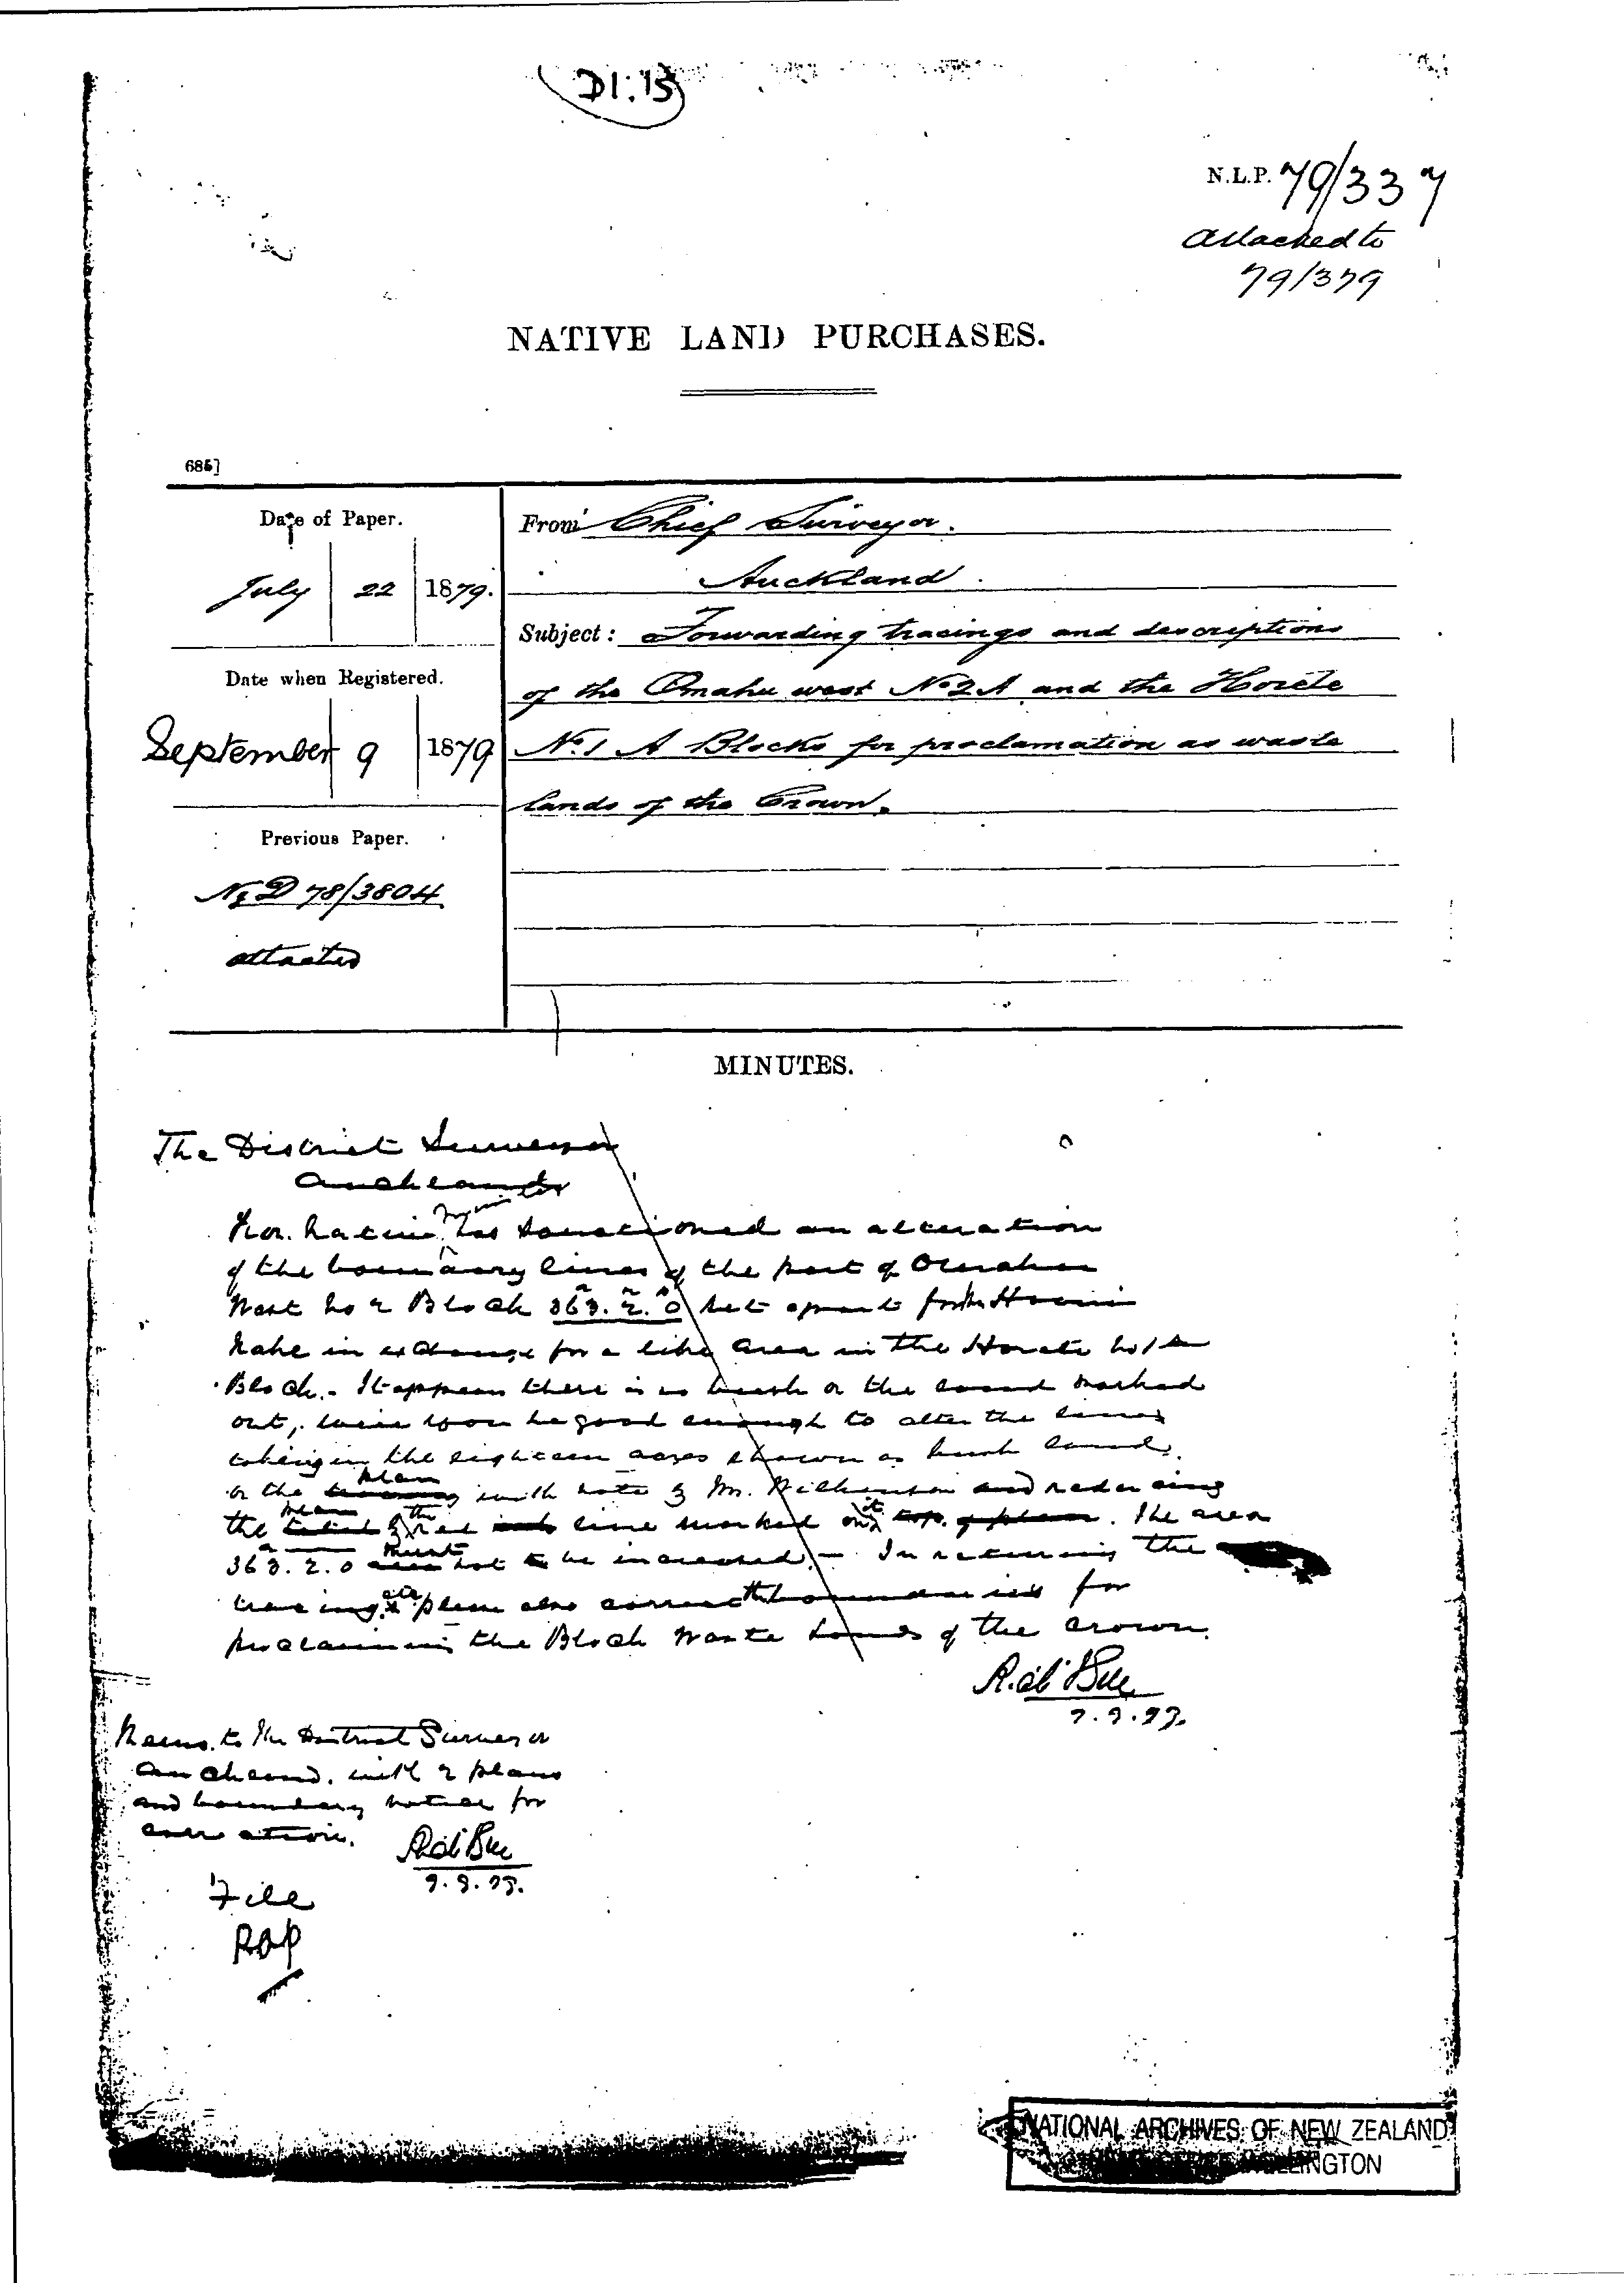 D1:15
N.L.P. 79/337
Attached to
79/379
NATIVE LAND PURCHASES.
685]
Date of Paper.
July 22 1879.
Date when Registered.
September 9 1879
Previous Paper.
NLD 78/3804
attached
From Chief Surveyor.
Auckland.
Subject: Forwarding tracings and descriptions
of the Omahu west No 2A and the Horete
No. 1 A Blocks for proclamation as waste
lands of the Crown.
MINUTES.
The District Surveyor
Auckland
Hon. Native Minister has sanctioned an alteration
of the boundary lines of the part of Omahu
West No 2 Block 363. 2. 0 set apart for the
in exchange for a like area in the Horete No 1 A
Block. - It appears there is no bush on the land marked
out, will you be good enough to alter the lines
taking in the eighteen acres shown as bush land
on the plan with note by Mr. Wilkinson and reducing
the line marked on it. The area
363. 2. 0 must not be increased. - In returning the
tracing please also correct the boundaries for
proclaiming the Block Waste Lands of the Crown.
Memo. to the District Surveyor
Auckland. with 2 plans
and boundary notice for
alteration.
File
NATIONAL ARCHIVES OF NEW ZEALAND
WELLINGTON